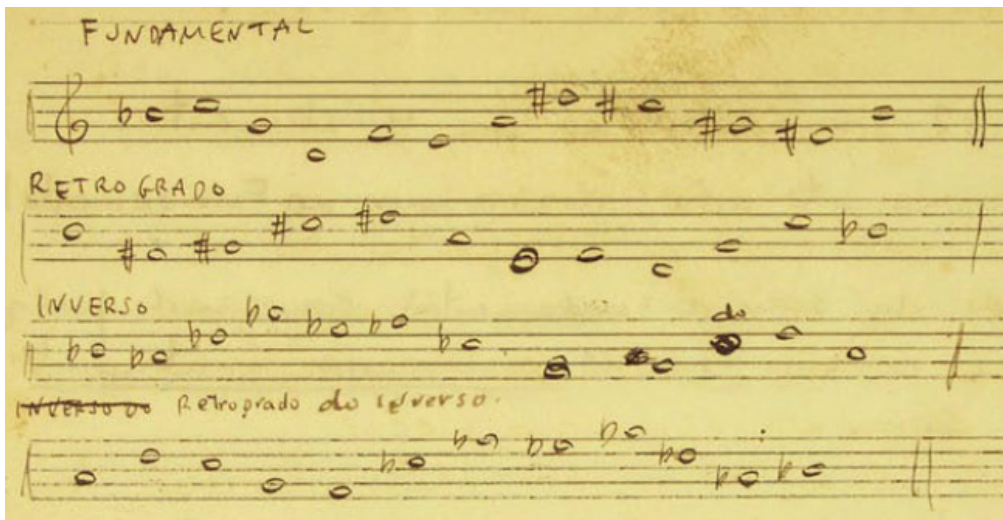 FUNDAMENTAL
RETROGRADO
INVERSO
do
INVERSO DO Retrogrado do inverso.